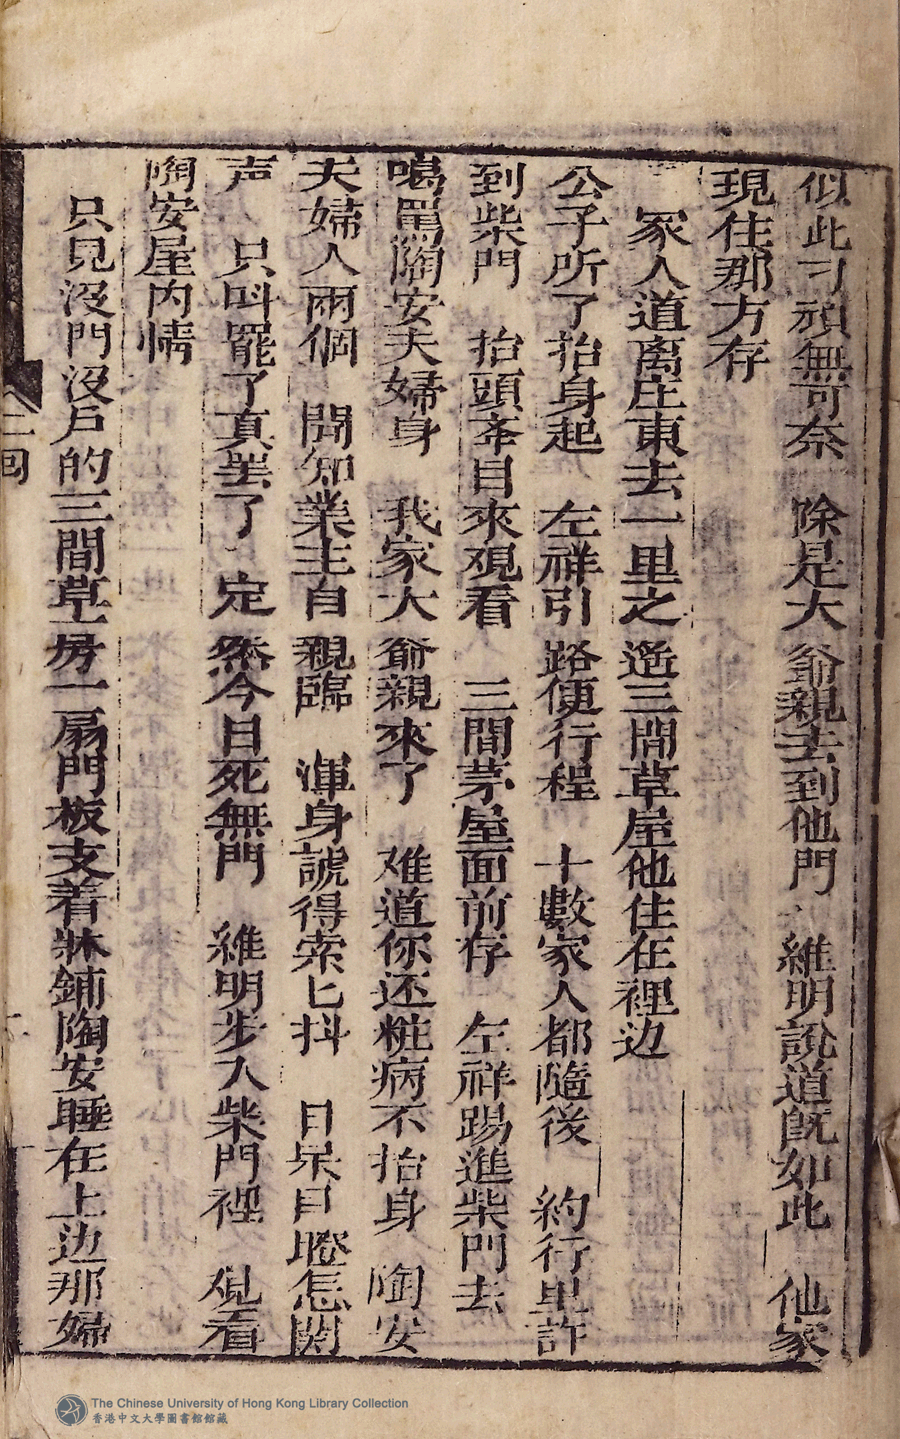 似此刁頑無可奈　除是大爺親去到他門　維明說道既如此　他家
現住那方存
冢人道离庄東去一里之遥三間草屋他住在裡边
公子听了抬身起　左祥引路便行程　十數家人都隨後　約行里許
到柴門　抬頭夲目來观看　三間茅屋面前存　左祥踢進柴門去
喝罵陶安夫婦身　我家大爺親來了　难道你还粧病不抬身　陶安
夫婦人兩個　聞知業主自親臨　渾身諕得索匕抖　目呆目瞪怎関
声　只呌罷了真罢了　定然今日死無門　維明步入柴門裡　覌看
陶安屋内情
只見没門没戶的三間草房一扇門板支着牀鋪陶安睡在上边那婦
二回
The Chinese University of Hong Kong Library Collection
香港中文大學圖書館館藏